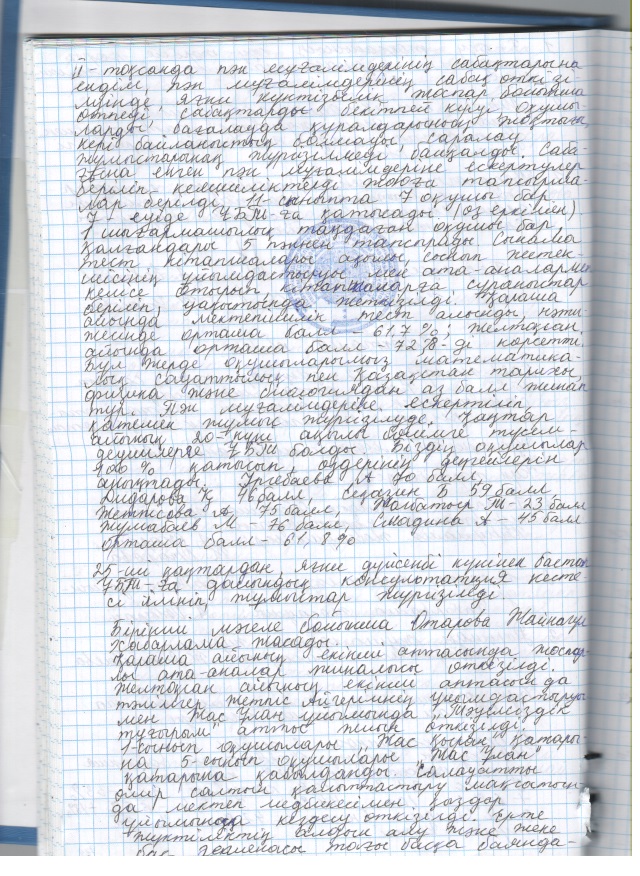 II-тоқсанда пән мұғалімдерінің сабақтарына
ендім, пән мұғалімдерінің сабақ өткізі-
луінде, яғни күнтізбелік жоспар бойынша
өтпеді, сабақтарды бекітпей кіруі, оқушы-
ларды бағалауда құралдарының жоқтығы,
кері байланыстың болмауы, саралау
жұмыстарының жүргізілмеді байқалды. Саба-
ғына енген пән мұғалімдеріне ескертулер
беріліп, кемшіліктерді жоюға тапсырма-
лар берілді. 11-сыныпта 7 оқушы бар
7-еуіде ҰБТ-ға қатысады. (өз еркімен)
1 шығармашылық таңдаған оқушы бар,
қалғандары 5 пәннен тапсырады. Сынама
тест кітапшалары ақылы, сынып жетек-
шісінің ұйымдастыруы мен ата-аналармен
келісе отырып, кітапшаларға сұраныстар
беріліп, уақытында жеткізілді. Қараша
айында мектепішілік тест алынды, нәти-
жесінде орташа балл - 61,7%; желтоқсан,
айында орташа балл - 72%-ді көрсетті.
Бұл жерде оқушыларымыз математика-
лық сауаттылық пен Қазақстан тарихы,
физика және биологиядан аз балл жинап
тұр. Пән мұғалімдеріне ескертіліп,
қатемен жұмыс жүргізілуде. Қаңтар
айының 20-күні ақылы бөлімге түсем-
деушілерге ҰБТ болды. Біздің оқушылар
100% қатысып, өздерінің деңгейлерін
анықтады. А 70 балл,
Дидарова Қ 46 балл, Б 59 балл
Жетпісова А, 75 балл, Жолбатыр Т - 23 балл
Жумабаев М - 76 балл, Смадина А - 45 балл
Орташа балл - 61,8%
25-ші қаңтардан, яғни дүйсенбі күнінен бастап
ҰБТ-ға дайындық консультация кесте-
сі ілініп, жұмыстар жүргізіледі
Бірінші мәселе бойынша Отарова Жайнагүл
хабарлама жасады.
Қараша айының екінші аптасында жоспар-
лы ата-аналар жиналысы өткізілді.
Желтоқсан айының екінші аптасында
тәлімгер Жетпіс Әйгерімнің ұйымдастыруы
мен Жас Ұлан ұйымында "Тәуелсіздік
тұғырым" атты жиын өткізілді.
1-сынып оқушылары "Жас қыран" қатары-
на, 5-сынып оқушылары "Жас Ұлан"
қатарына қабылданды. Салауатты
өмір салтын қалыптастыру мақсатын-
да мектеп медбикесімен қыздар
ұйымында кездесу өткізілді. Ерте
жүктіліктің алдын алу және жеке
бас гигиенасы тағы басқа баянда-